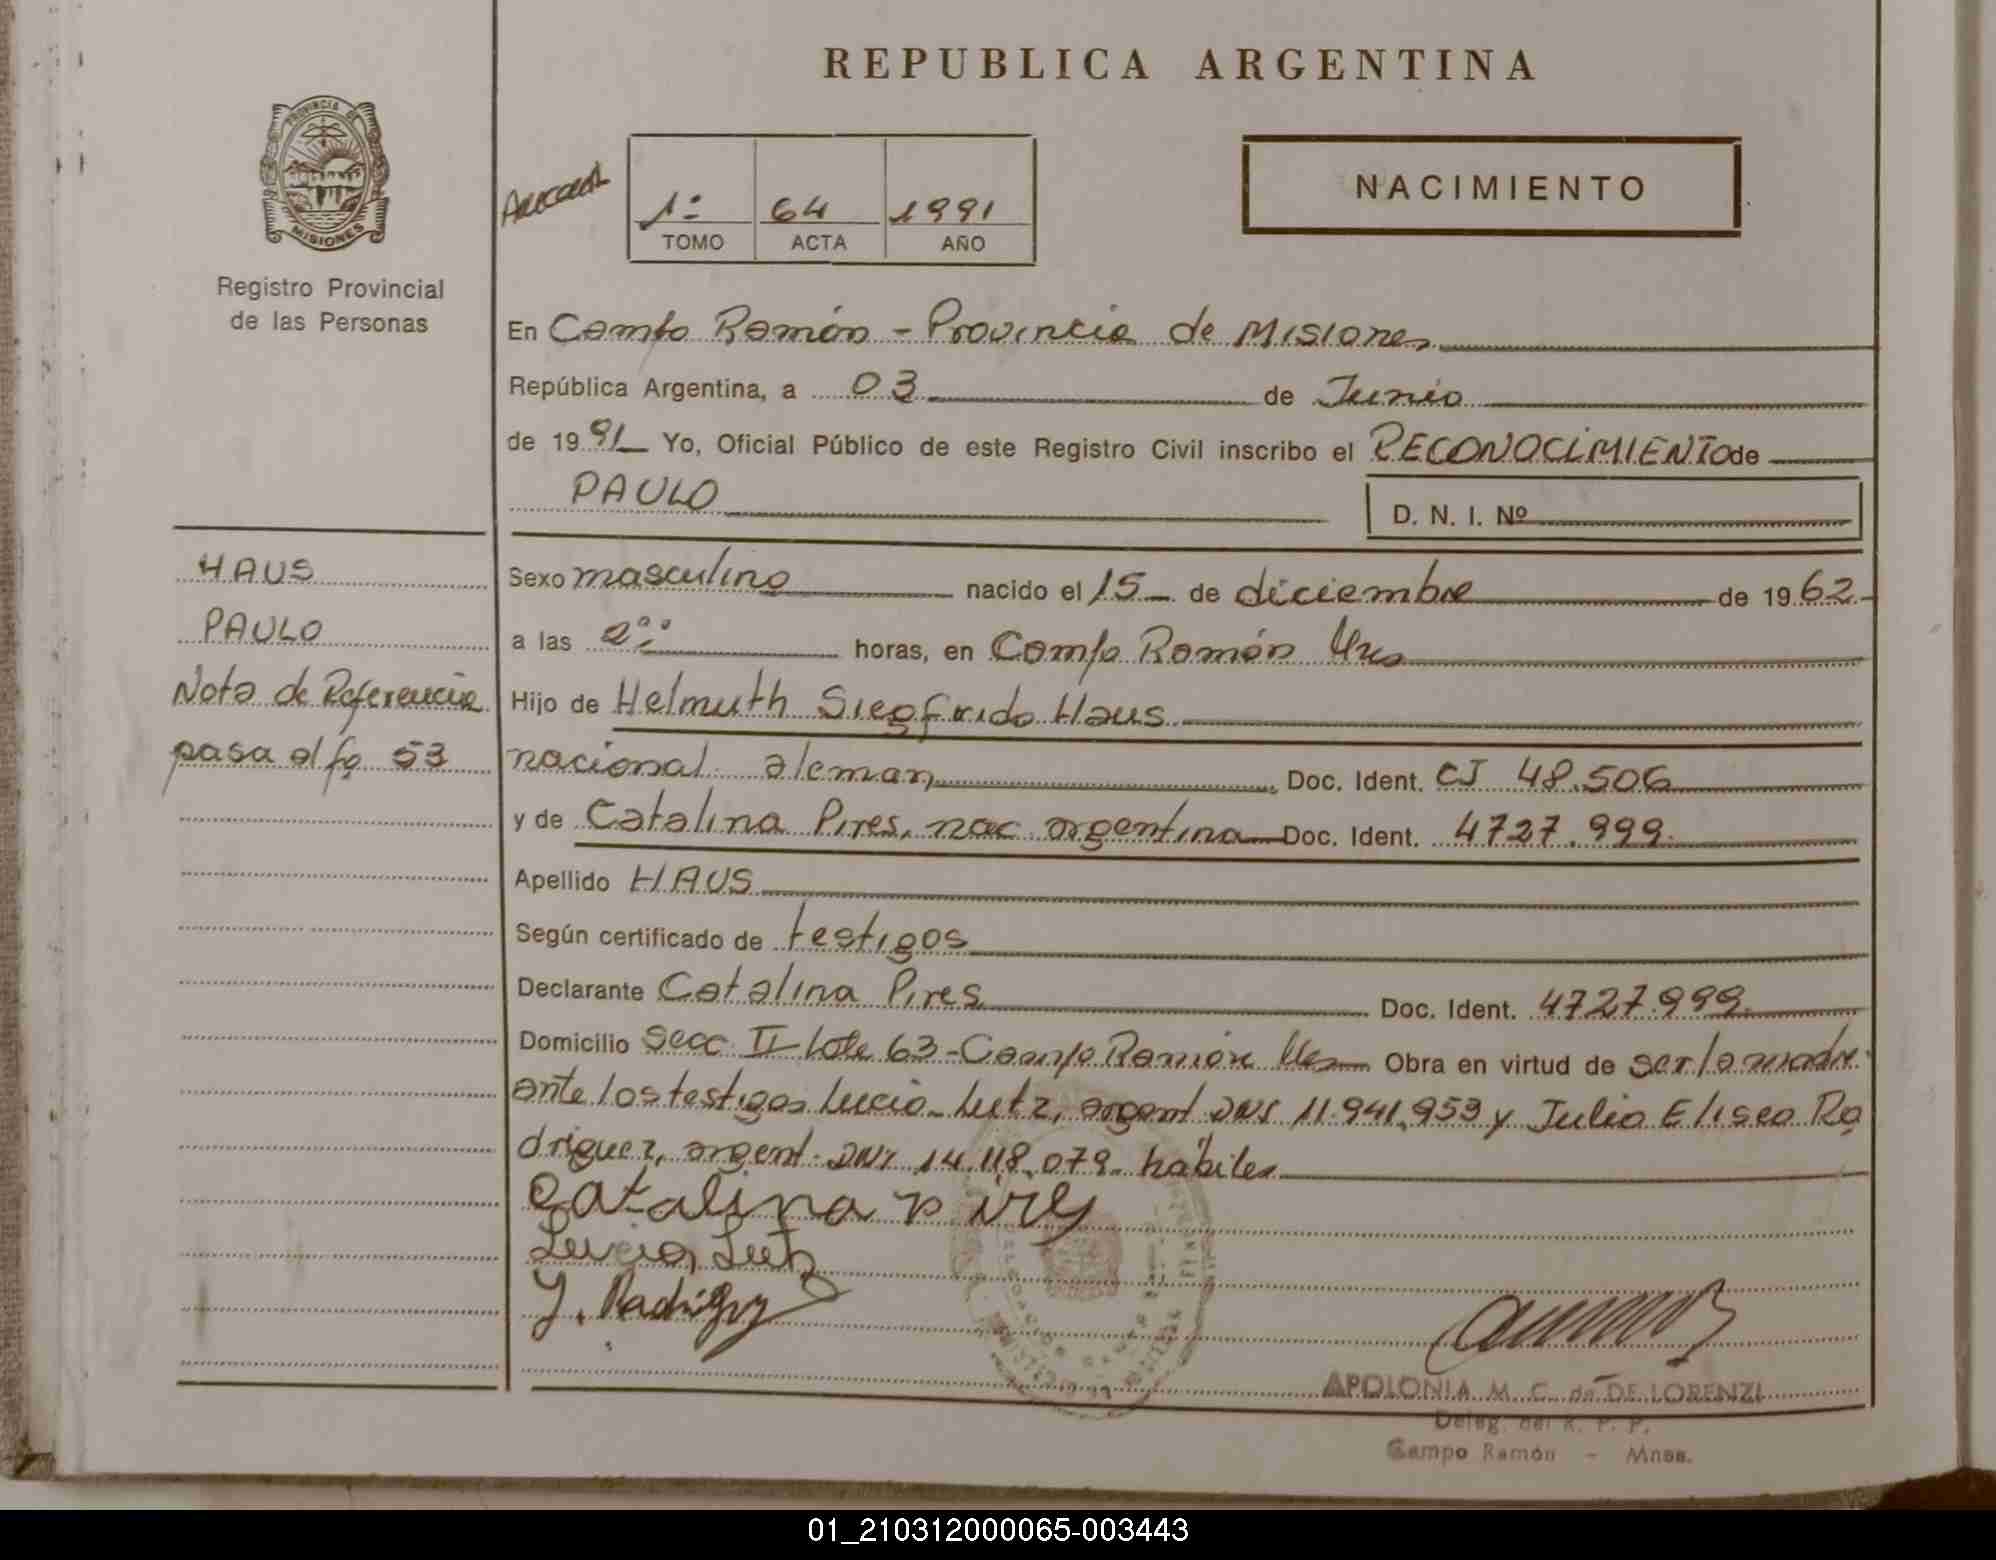 REPUBLICA ARGENTINA
PROVINCIA DE
MISIONES
Registro Provincial
de las Personas
1º 64 1991
TOMO ACTA AÑO
NACIMIENTO
En Campo Ramón - Provincia de Misiones
República Argentina, a 03 de Junio
de 1991 Yo, Oficial Público de este Registro Civil inscribo el RECONOCIMIENTO de
PAULO
D. N. I. Nº
HAUS
PAULO
Nota de Referencia
pasa al fo 53
Sexo masculino nacido el 15 de diciembre de 1962
a las 2⁰⁰ horas, en Campo Ramón Mnes
Hijo de Helmuth Siegfrido Haus
nacional. aleman Doc. Ident. CI 48.506
y de Catalina Pires, nac. argentina Doc. Ident. 4727.999.
Apellido HAUS
Según certificado de testigos
Declarante Catalina Pires Doc. Ident. 4727.999.
Domicilio Secc II Lote 63-Campo Ramón Mnes Obra en virtud de ser la madre
ante los testigos Lucio Lutz, argent DNI 11.941.953 y Julio Eliseo Ro
driguez, argent. DNI 14.118.079. hábiles
Catalina Pires
Lucio Lutz
J. Rodriguez
APOLONIA M. C. de DE LORENZI
Deleg. del R. P. P.
Campo Ramón - Mnes.
01_210312000065-003443